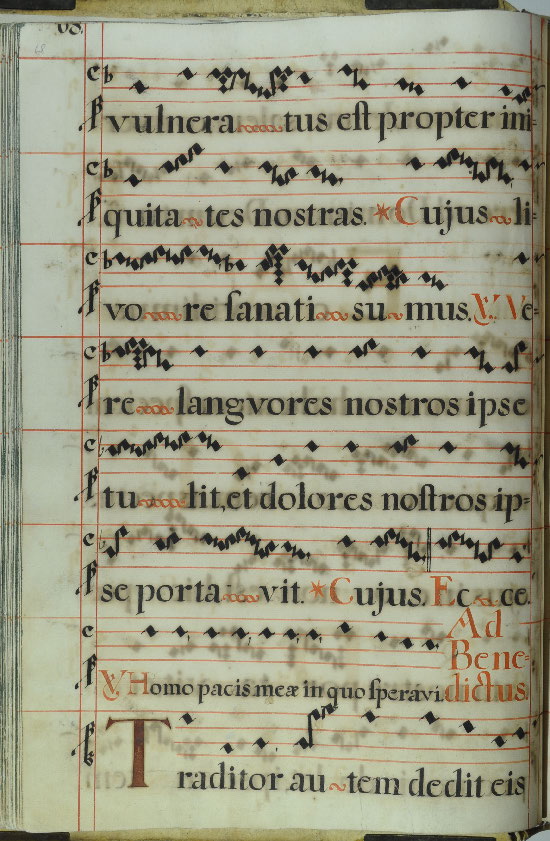 68.
68
vulneratus est propter ini=
quitates nostras. * Cujus li=
vore sanati sumus. V. Ve=
re langvores nostros ipse
tulit, et dolores nostros ip=
se portavit. * Cujus. Ecce.
Ad
Bene=
V. Homo pacis meæ in quo speravi. dictus.
Traditor autem dedit eis